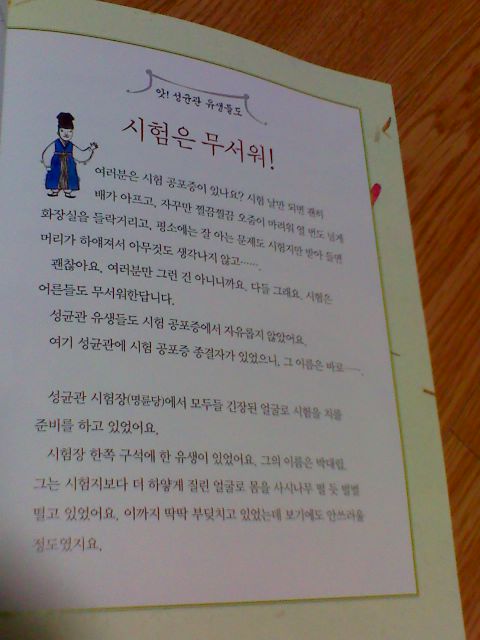 앗! 성균관 유생들도
시험은 무서워!
여러분은 시험 공포증이 있나요? 시험 날만 되면 괜히
배가 아프고, 자꾸만 찔끔찔끔 오줌이 마려워 열 번도 넘게
화장실을 들락거리고, 평소에는 잘 아는 문제도 시험지만 받아 들면
머리가 하얘져서 아무것도 생각나지 않고…….
괜찮아요. 여러분만 그런 건 아니니까요. 다들 그래요. 시험은
어른들도 무서워한답니다.
성균관 유생들도 시험 공포증에서 자유롭지 않았어요.
여기 성균관에 시험 공포증 종결자가 있었으니, 그 이름은 바로──.
성균관 시험장(명륜당)에서 모두들 긴장된 얼굴로 시험을 치를
준비를 하고 있었어요.
시험장 한쪽 구석에 한 유생이 있었어요. 그의 이름은 박대립.
그는 시험지보다 더 하얗게 질린 얼굴로 몸을 사시나무 떨 듯 벌벌
떨고 있었어요. 이까지 딱딱 부딪치고 있었는데 보기에도 안쓰러울
정도였지요.